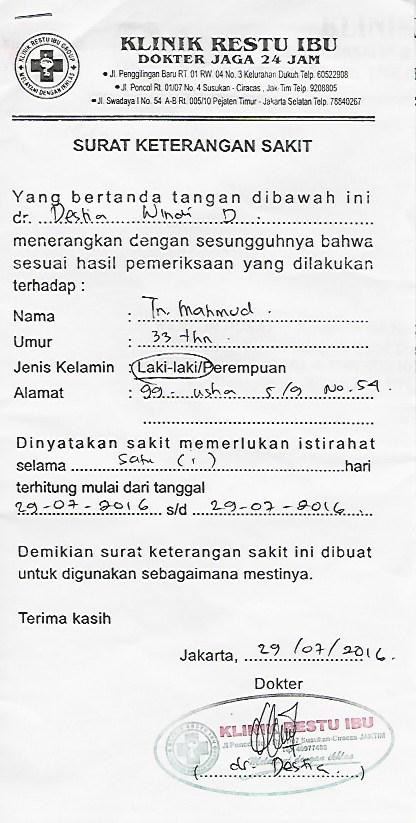 KLINIK RESTU IBU GROUP
MELAYANI DENGAN IKHLAS
KLINIK RESTU IBU
DOKTER JAGA 24 JAM
• Jl. Penggilingan Baru RT. 01 RW. 04 No. 3 Kelurahan Dukuh Telp. 60522908
• Jl. Poncol Rt. 01/07 No. 4 Susukan - Ciracas, Jak-Tim Telp. 9208805
• Jl. Swadaya I No. 54 A-B Rt. 005/10 Pejaten Timur - Jakarta Selatan Telp. 78840267
SURAT KETERANGAN SAKIT
Yang bertanda tangan dibawah ini
dr. Destia Winda D.
menerangkan dengan sesungguhnya bahwa
sesuai hasil pemeriksaan yang dilakukan
terhadap :
Nama : Tn. Mahmud.
Umur : 33 thn.
Jenis Kelamin : Laki-laki/Perempuan
Alamat : gg. usha 5/9 No. 54.
Dinyatakan sakit memerlukan istirahat
selama satu (1) hari
terhitung mulai dari tanggal
29-07-2016 s/d 29-07-2016
Demikian surat keterangan sakit ini dibuat
untuk digunakan sebagaimana mestinya.
Terima kasih
Jakarta, 29/07/2016.
Dokter
KLINIK RESTU IBU
Susukan-Ciracas JAKTIM
(dr. Destia)